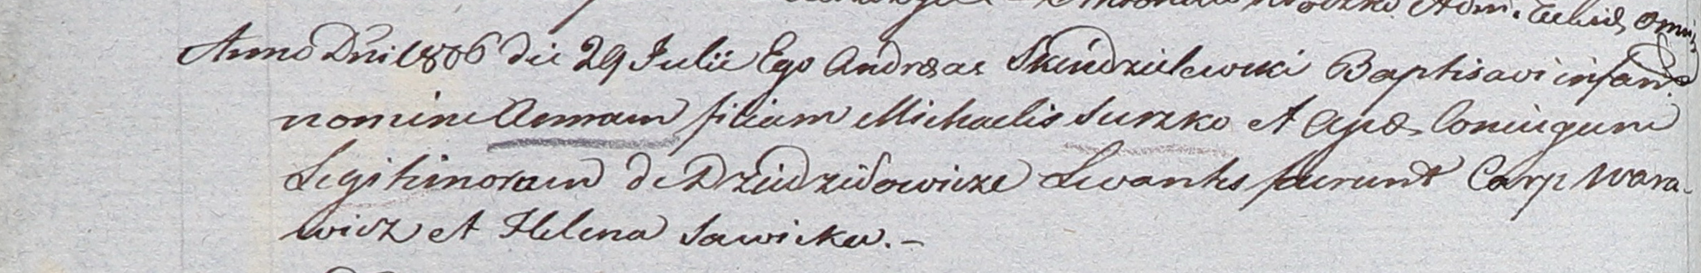 Anno Dni 1806 die 29 Julii Ego Andreas Skindzielewski Baptisavi infan.
nomine Annam filiam Michaelis Suszko et Apæ Coniugum
Legitimorum de Dziedziłowicze Levantes fuerunt Carp Wara-
wicz et Helena Sawicka. -